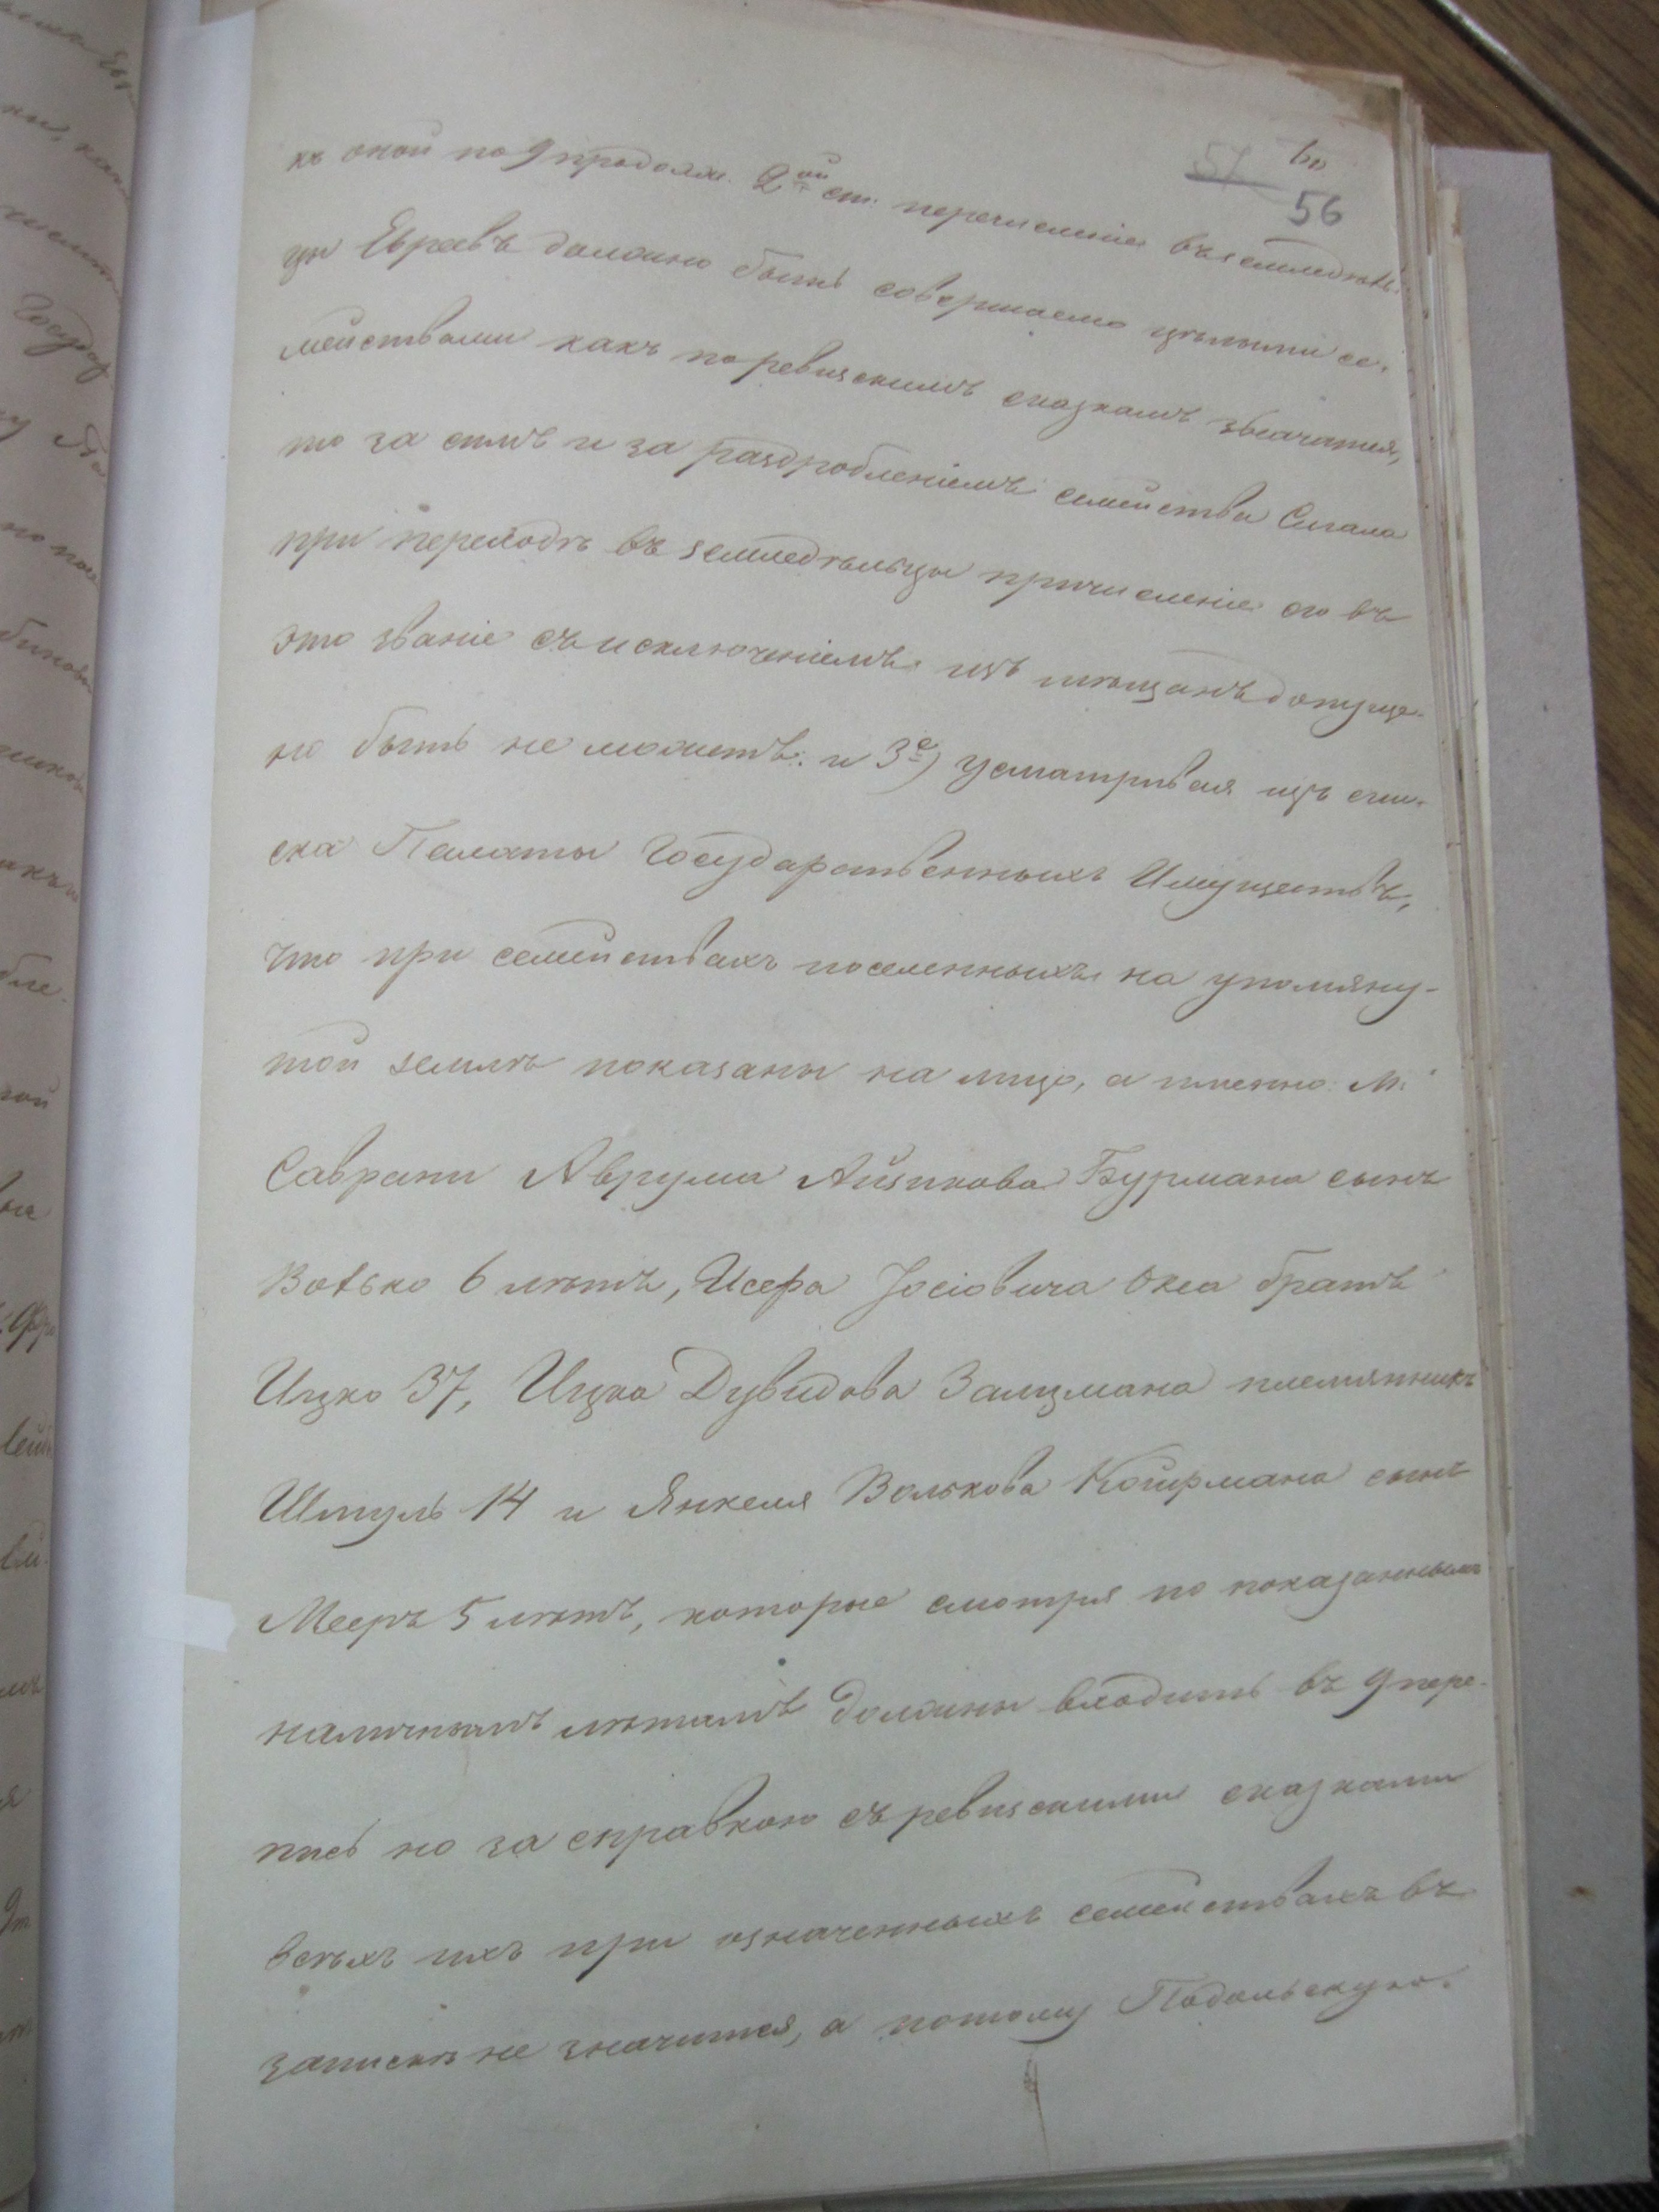 56
къ оной по 9 продолж. 2ой ст. перечисленіе въ земледѣль-
цы Евреевъ должно быть совершаемо цѣлыми се-
мействами какъ по ревизскимъ сказкамъ значатся,
то за симъ и за раздробленіемъ семейства Сигала
при переходѣ въ земледѣльцы причисленіе его въ
это званіе съ исключеніемъ изъ мѣщанъ допуще-
но быть не можетъ: и 3е) усматривая изъ спи-
ска Палаты Государственныхъ Имуществъ,
что при семействахъ поселенныхъ на упомяну-
той землѣ показаны на лицо, а именно: м.
Саврани Аврума Айзикова Бурмана сынъ
6 лѣтъ, Иосіовича братъ
Ицко 37, Ицка Дувидова Залцмана племянникъ
Шмуль 14 и Янкеля Волькова сынъ
Мееръ 5 лѣтъ, которые смотря по показаннымъ
наличнымъ лѣтамъ должны входить въ 9 пере-
пись но за справкою съ ревизскими сказками
всѣхъ ихъ при означенныхъ семействахъ въ
запискѣ не значится, а потому Подольскую